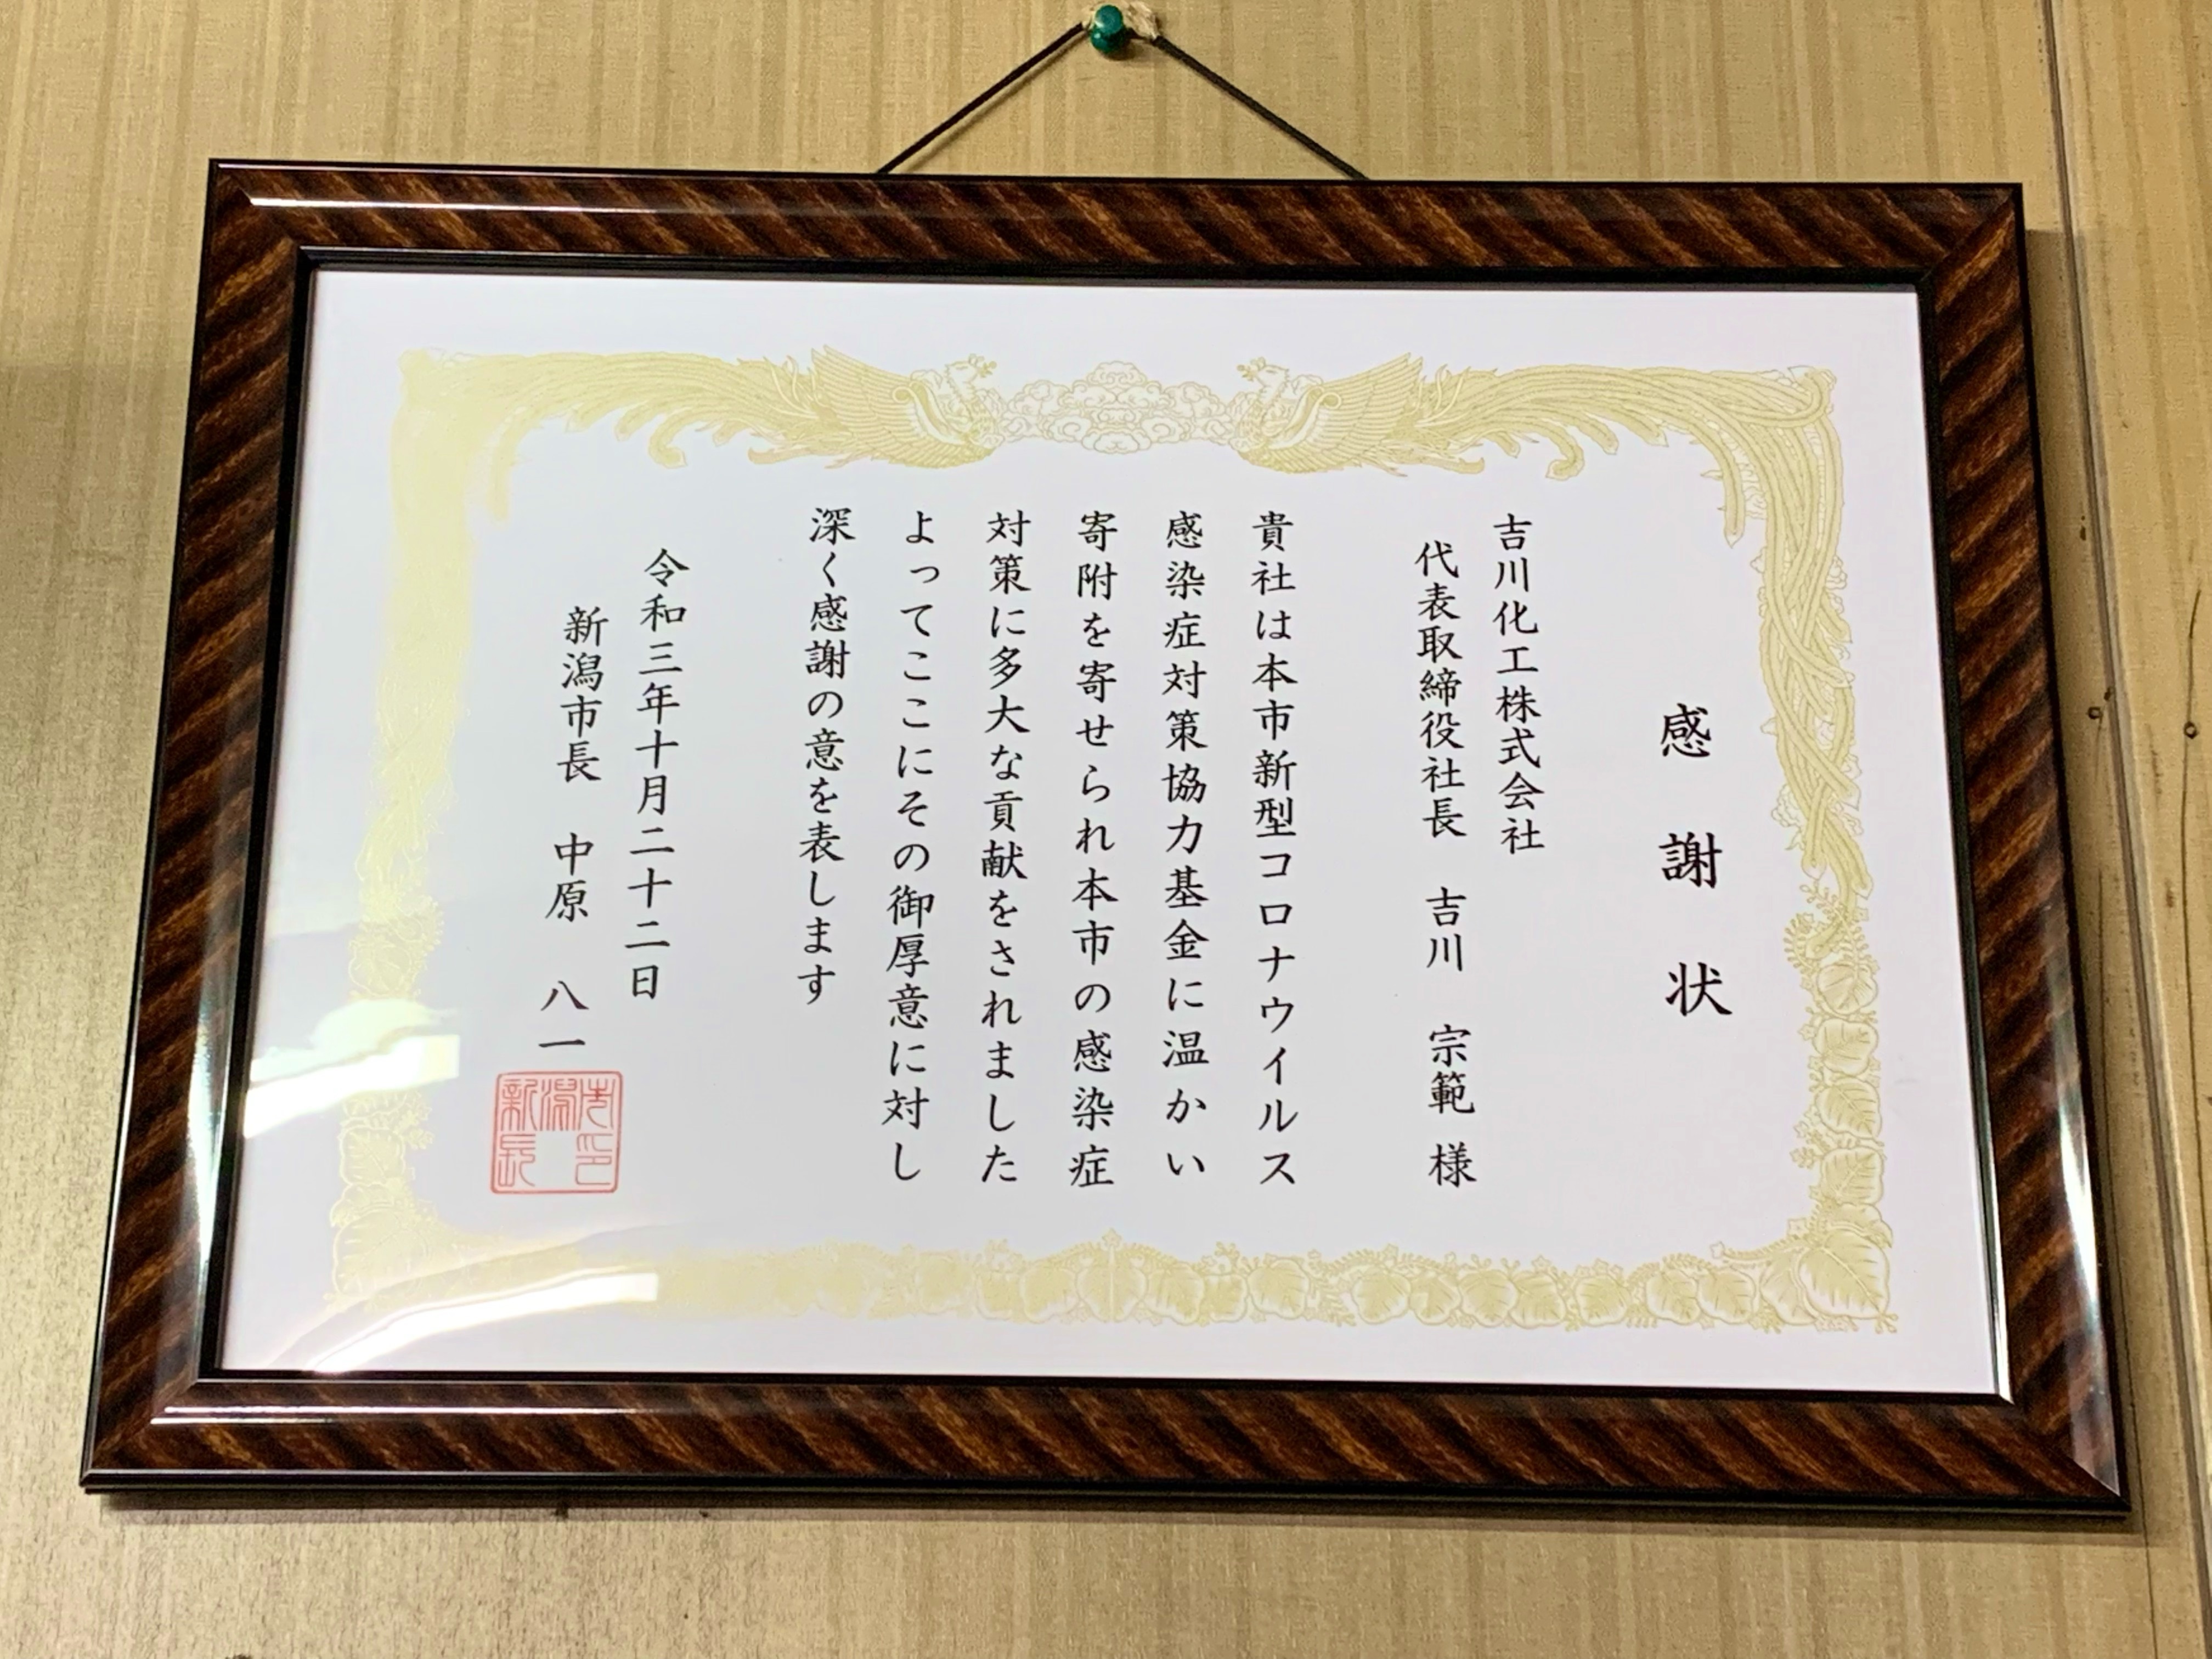 感謝状
吉川化工株式会社
代表取締役社長 吉川 宗範 様
貴社は本市新型コロナウイルス
感染症対策協力基金に温かい
寄附を寄せられ本市の感染症
対策に多大な貢献をされました
よってここにその御厚意に対し
深く感謝の意を表します
令和三年十月二十二日
新潟市長 中原 八一
新潟市長印